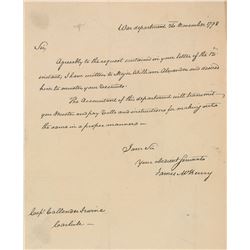 War department 26 November 1798
Sir,
Agreeably to the request contained in your letter of the 12
instant, I have written to Major William Alexander and desired
him to muster your recruits.
The Accountant of this department will transmit
you Muster and pay Rolls and instructions for making out
the same in a proper manner.
I am Sir
Your obedient Servant
James McHenry
Capt Callender Irvine
Carlisle